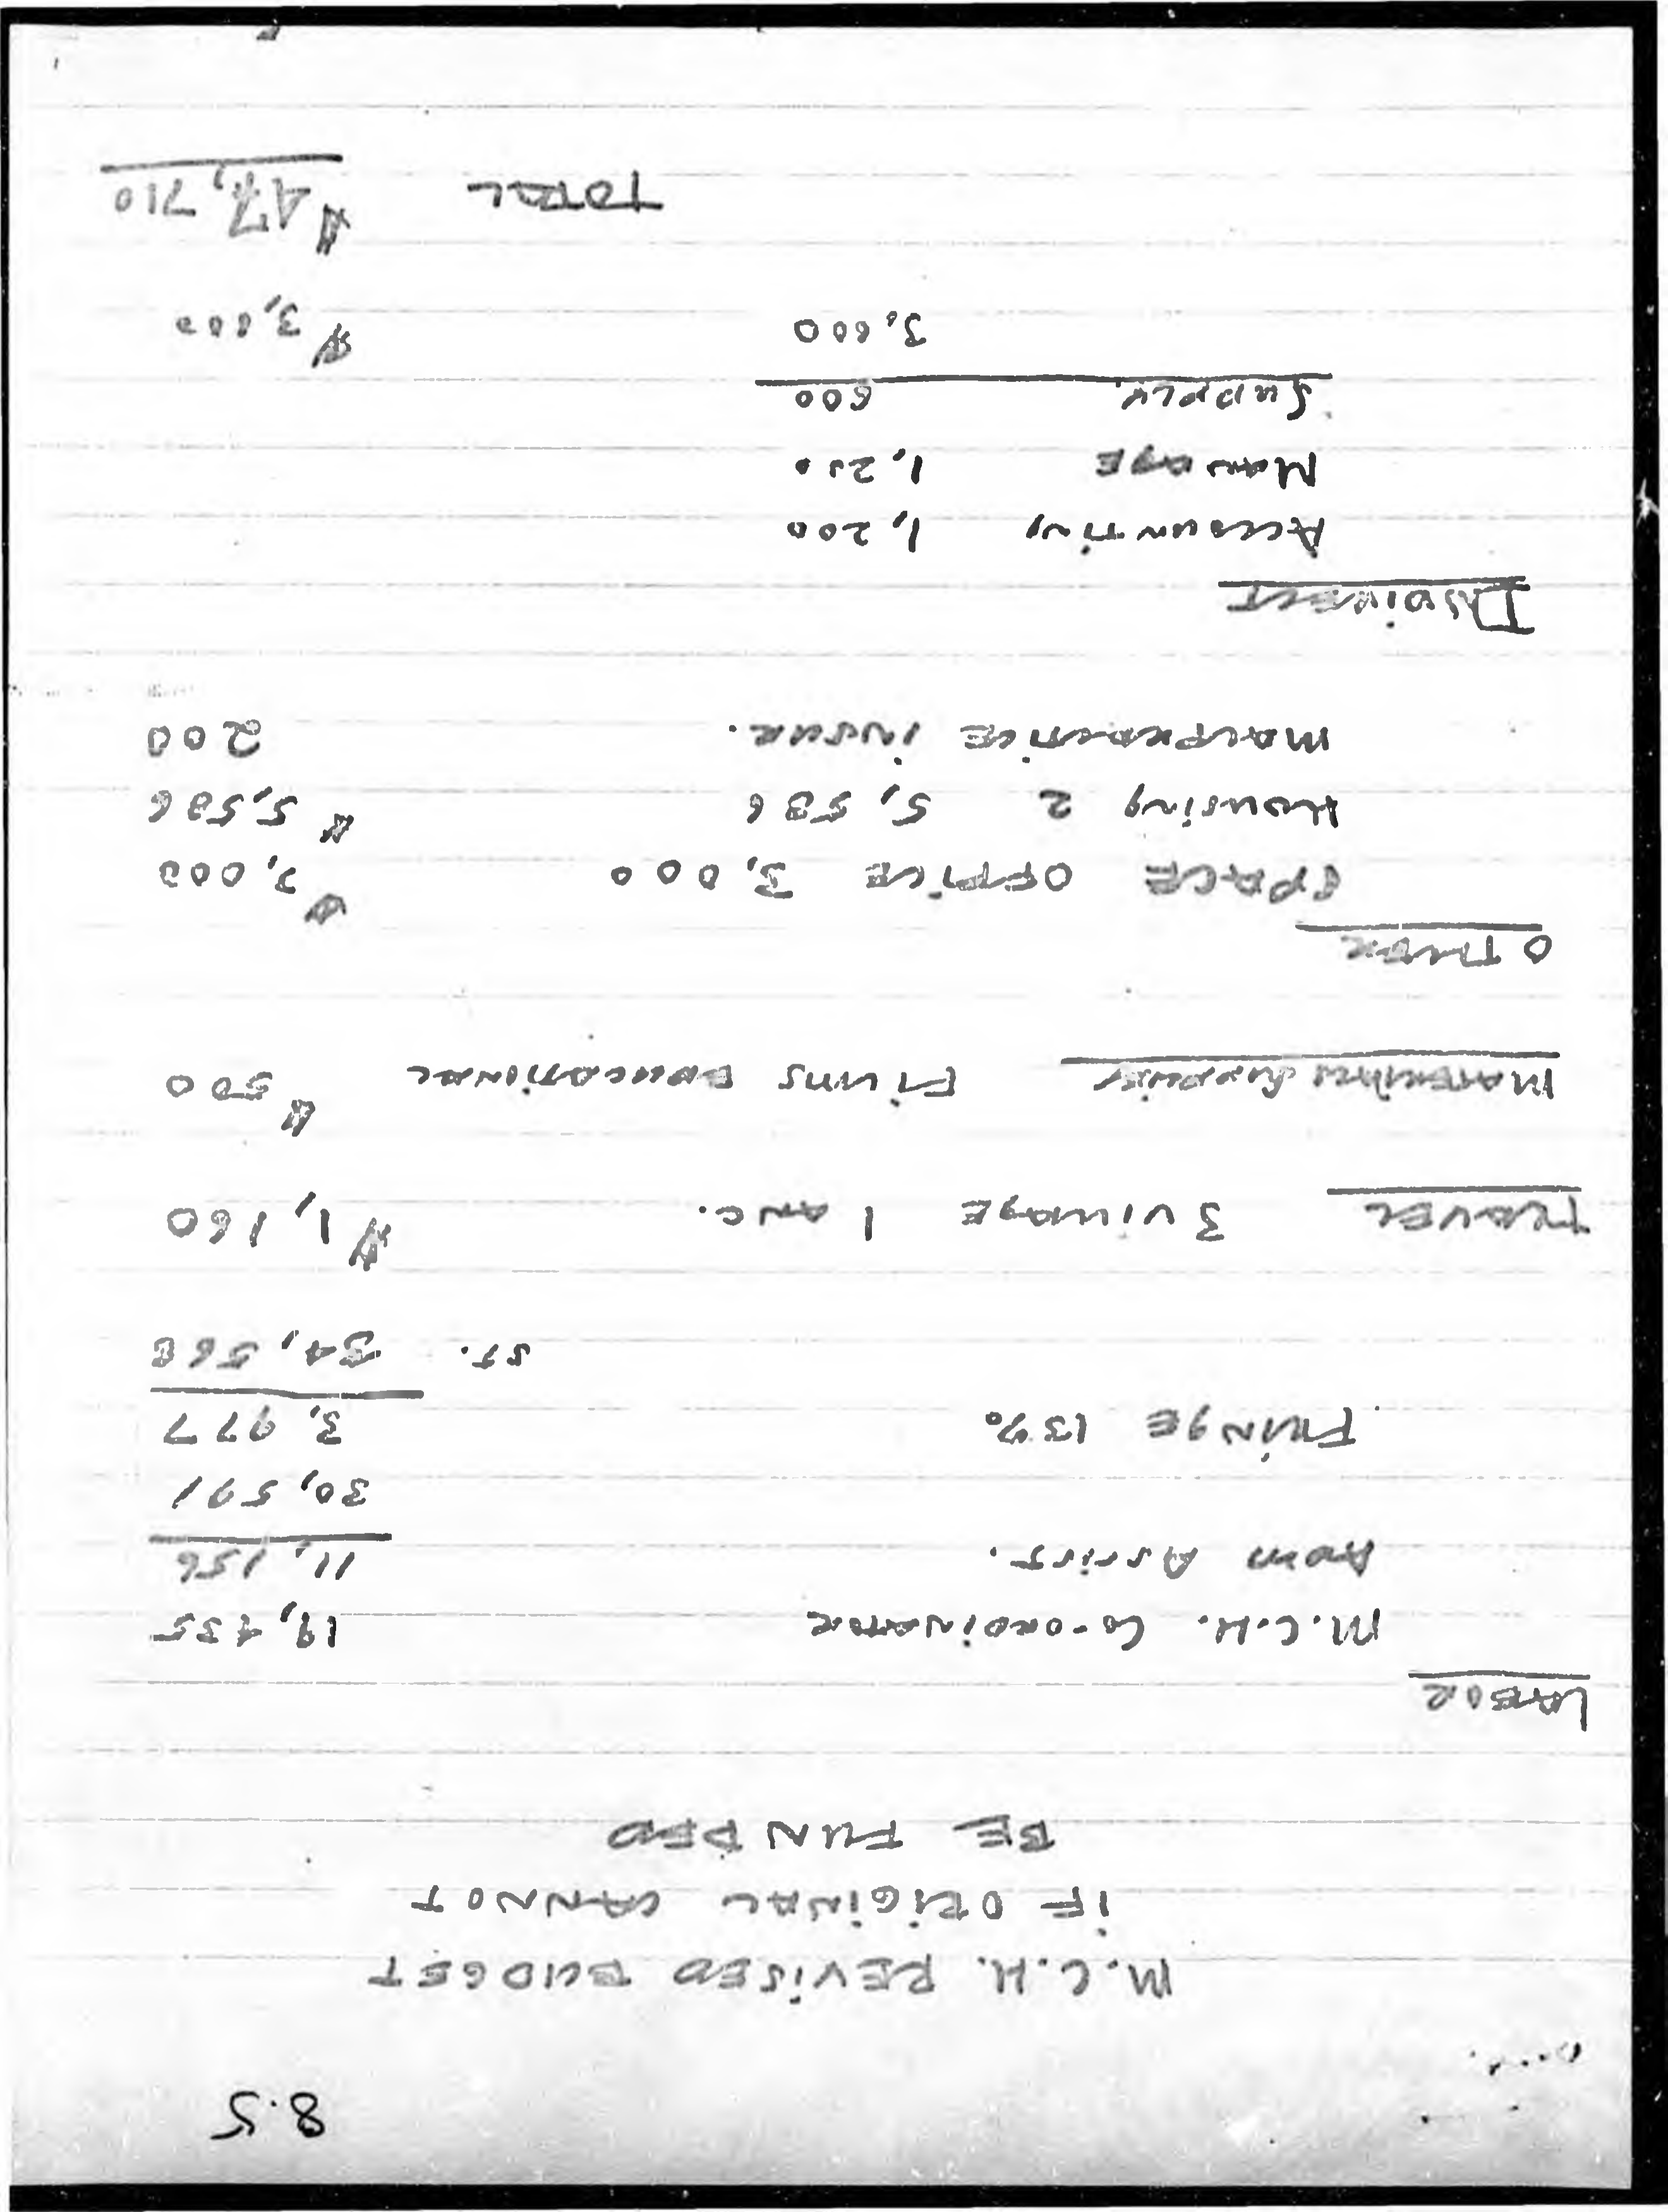 8.5
M.C.H. REVISED BUDGET
iF ORIGINAL CANNOT
BE FUNDED
LABOR
M.C.H. Co-ORDINATOR 19,435
ADM ASSIST. 11,156
30,591
FRINGE 13% 3,977
ST. 34,568
TRAVEL 3 VILLAGE 1 ANC. $1,160
MATERIALS SUPPLIES FILMS EDUCATIONAL $500
OTHER
SPACE OFFICE 3,000 $3,000
HOUSING 2 5,586 $5,586
MALPRACTICE INSUR. 200
INDIRECT
ACCOUNTING 1,200
MANAGE 1,200
SUPPLY 600
3,000 $3,000
TOTAL $47,710